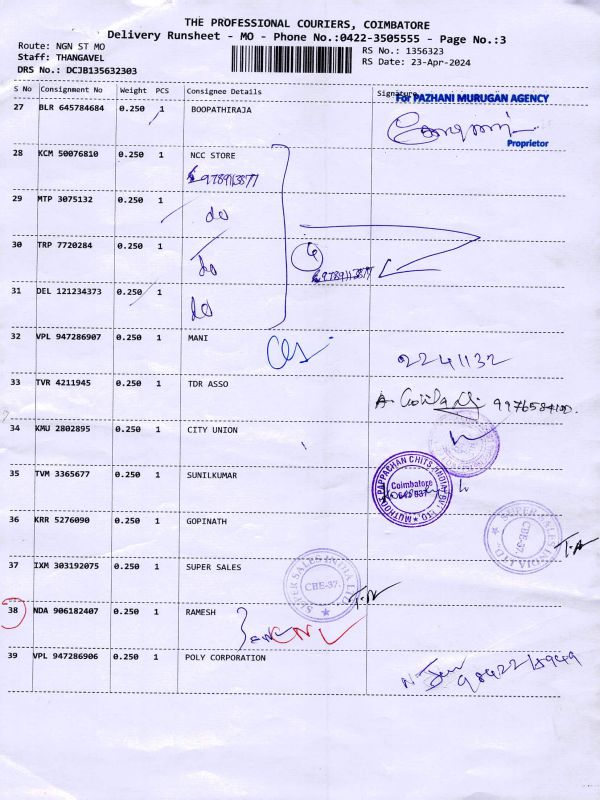 THE PROFESSIONAL COURIERS, COIMBATORE
Delivery Runsheet - MO - Phone No.:0422-3505555 - Page No.:3
Route: NGN ST MO
Staff: THANGAVEL
DRS No.: DCJB135632303
RS No.: 1356323
RS Date: 23-Apr-2024
S No Consignment No Weight PCS Consignee Details Signature
For PAZHANI MURUGAN AGENCY
27 BLR 645784684 0.250 1 BOOPATHIRAJA
Proprietor
28 KCM 50076810 0.250 1 NCC STORE
9789113877
29 MTP 3075132 0.250 1
do
30 TRP 7720284 0.250 1
do
9789113877
31 DEL 121234373 0.250 1
do
32 VPL 947286907 0.250 1 MANI
2241132
33 TVR 4211945 0.250 1 TDR ASSO
A.
34 KMU 2802895 0.250 1 CITY UNION
35 TVM 3365677 0.250 1 SUNILKUMAR
MUTHOOT PAPPACHAN CHITS (INDIA) PVT LTD
Coimbatore
641 037
36 KRR 5276090 0.250 1 GOPINATH
SUPER SALES INDIA LTD.
CBE-37.
T.A
37 IXM 303192075 0.250 1 SUPER SALES
SUPER SALES INDIA LTD.
CBE-37.
38 NDA 906182407 0.250 1 RAMESH
39 VPL 947286906 0.250 1 POLY CORPORATION